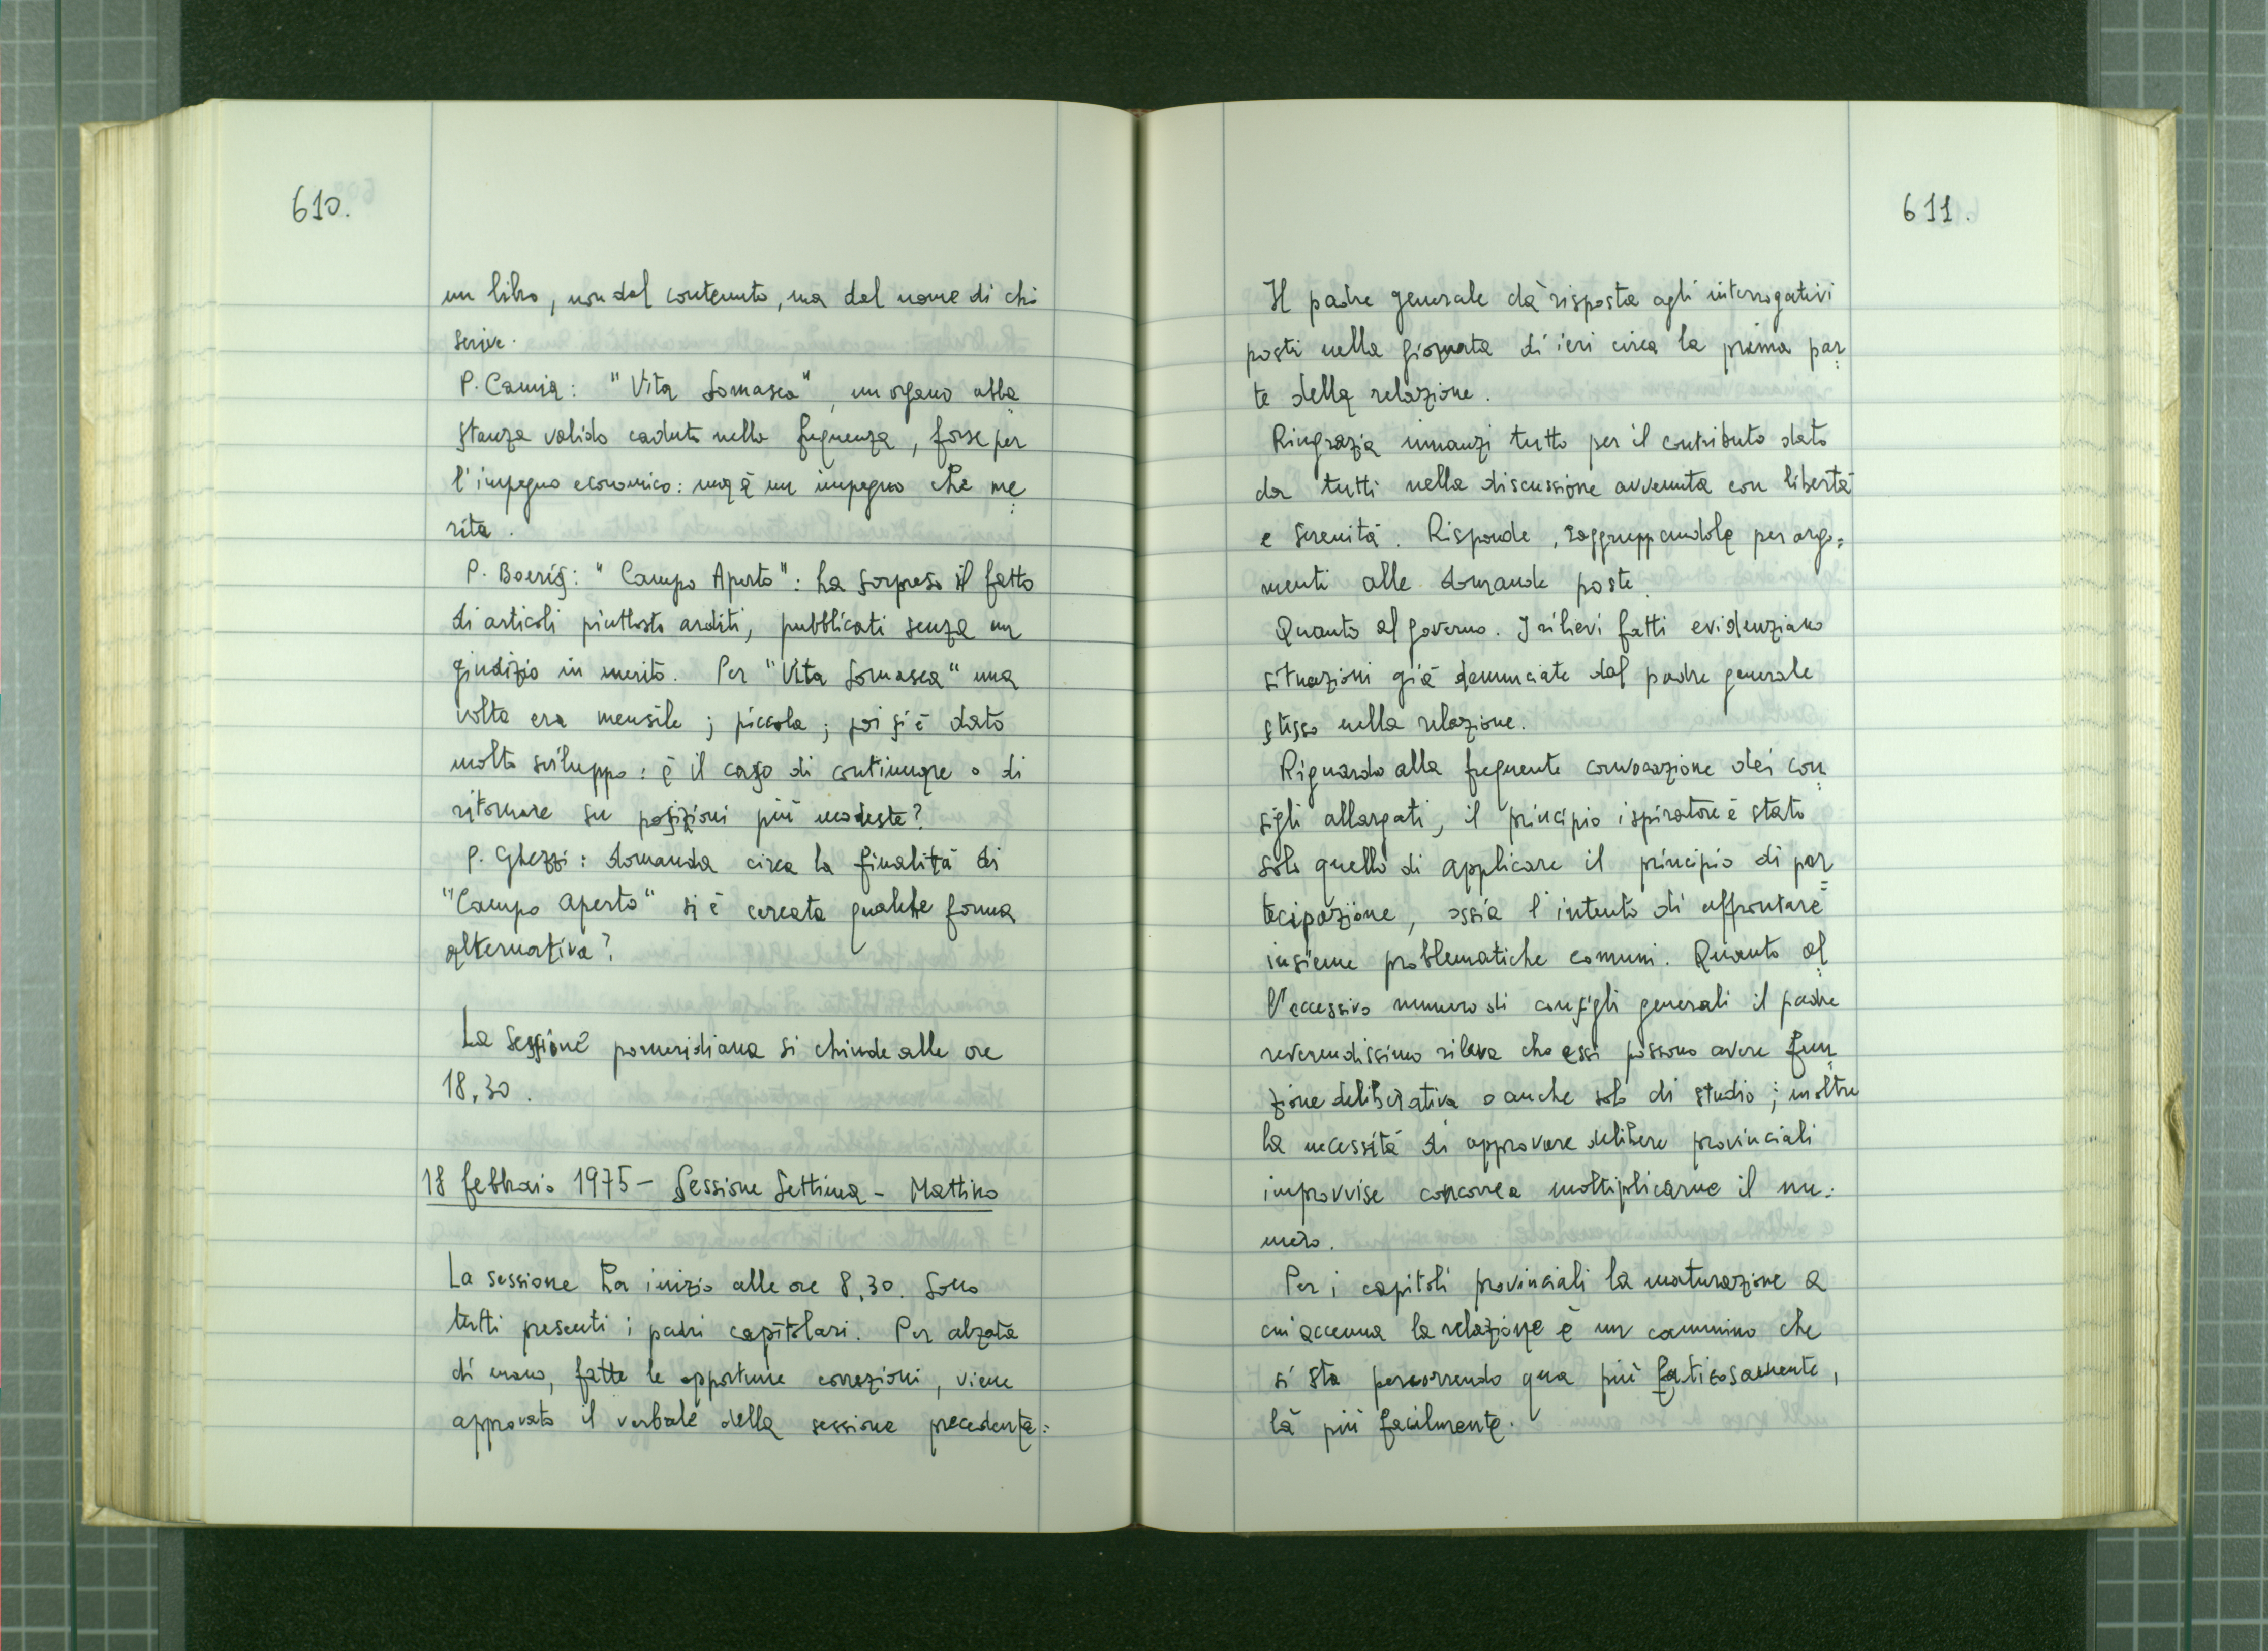 610.
un libro, non dal contenuto, ma dal nome di chi
scrive.
P. Camia: "Vita Somasca", un organo abba=
stanza valido caduto nella frequenza, forse per
l'impegno economico: ma è un impegno che me=
rita.
P. Boeris: "Campo Aperto": ha sorpreso il fatto
di articoli piuttosto arditi, pubblicati senza un
giudizio in merito. Per "Vita Somasca" una
volta era mensile; piccola; poi si è dato
molto sviluppo: è il caso di continuare o di
ritornare su posizioni più modeste?
P. Ghezzi: domanda circa la finalità di
"Campo aperto" si è cercata qualche forma
alternativa?
La sessione pomeridiana si chiude alle ore
18,30.
18 febbraio 1975 - Sessione Settima - Mattino
La sessione ha inizio alle ore 8,30. Sono
tutti presenti i padri capitolari. Per alzata
di mano, fatte le opportune correzioni, viene
approvato il verbale della sessione precedente.
611.
Il padre generale dà risposta agli interrogativi
posti nella giornata di ieri circa la prima par=
te della relazione.
Ringrazia innanzi tutto per il contributo dato
da tutti nella discussione avvenuta con libertà
e serenità. Risponde, raggruppandole per argo=
menti alle domande poste.
Quanto al governo. I rilievi fatti evidenziano
situazioni già denunciate dal padre generale
stesso nella relazione.
Riguardo alla frequente convocazione dei con=
sigli allargati, il principio ispiratore è stato
solo quello di applicare il principio di par=
tecipazione, ossia l'intento di affrontare
insieme problematiche comuni. Quanto al=
l'eccessivo numero di consigli generali il padre
reverendissimo rileva che essi possono avere fun=
zione deliberativa o anche solo di studio; inoltre
la necessità di approvare delibere provinciali
improvvise concorre a moltiplicarne il nu=
mero.
Per i capitoli provinciali la maturazione a
cui accenna la relazione è un cammino che
si sta percorrendo qua più faticosamente,
là più facilmente.